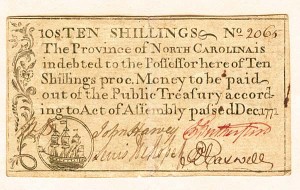 10S TEN SHILLINGS No 2065
The Province of NORTH CAROLINA is
indebted to the Possessor here of Ten
Shillings proc. Money to be paid
out of the Public Treasury accord-
ing to Act of Assembly passed Dec. 1771
John Harvey Rutherfurd
Lewis
Caswell